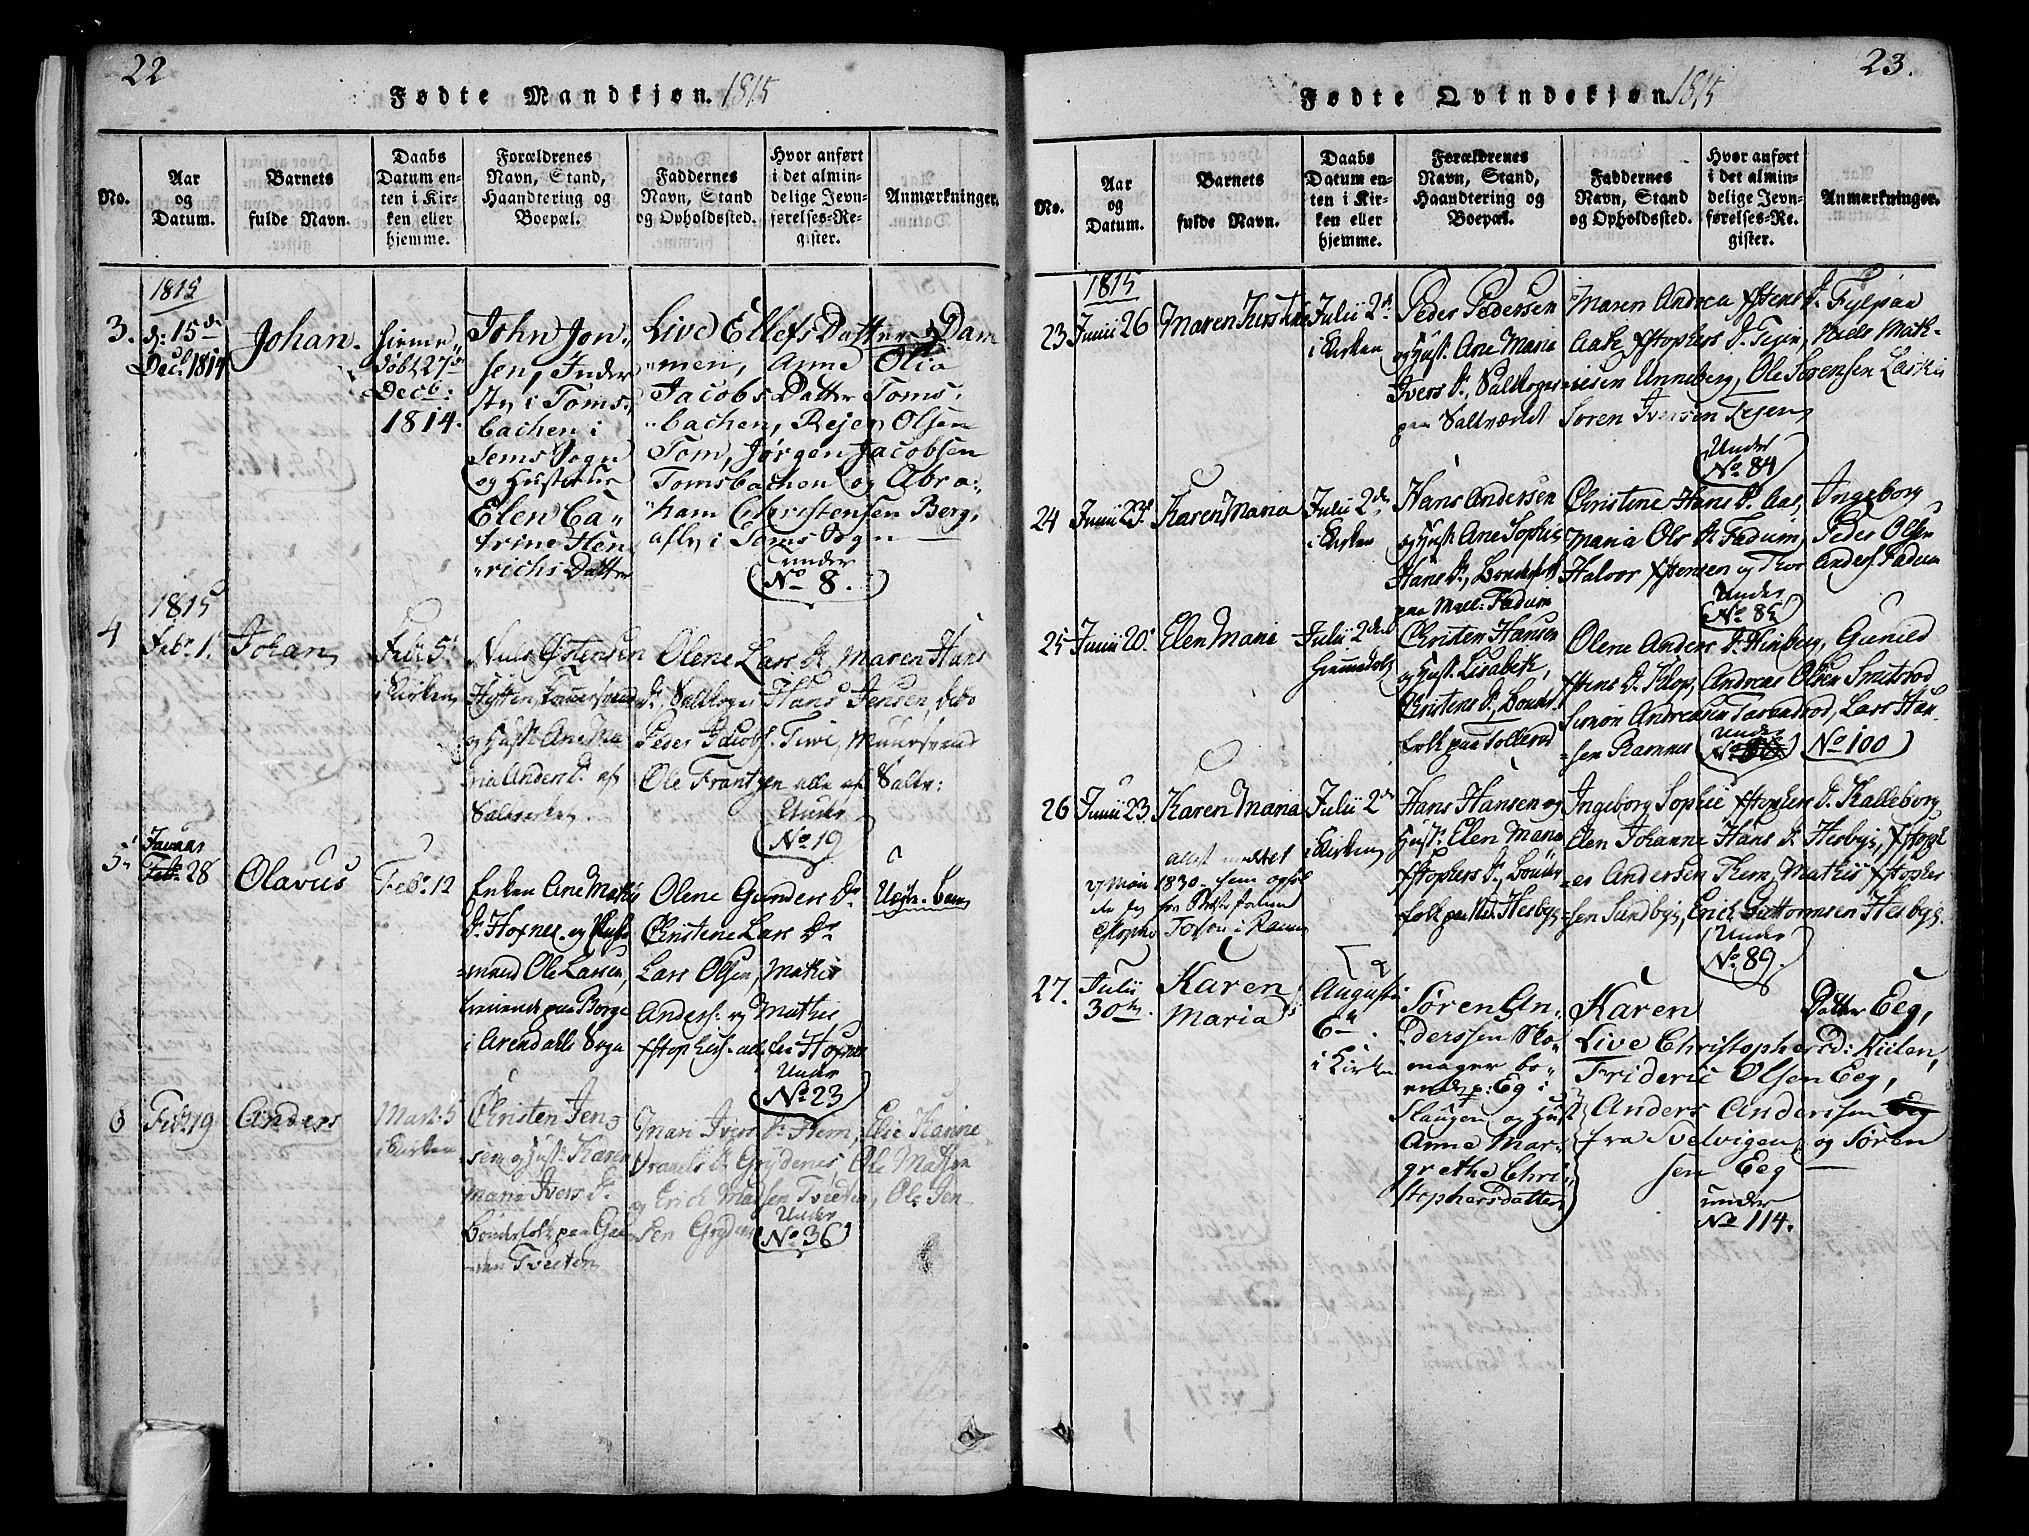 22
Fødte Mandkjøn. 1815
No.
Aar
og
Datum.
Barnets
fulde Navn.
Daabs
Datum en-
ten i Kir-
ken eller
hjemme.
Forældrenes
Navn, Stand,
Haandtering og
Boepæl.
Faddernes
Navn, Stand
og Opholdssted.
Hvor anført
i det almin-
delige Jevn-
førelses-Re-
gister.
Anmærkninger.
1815
3.
d: 15de
Decbr 1814
Johan.
hjemme
døbt 27de
Decbr:
1814.
John Jon-
sen, Inder-
ste i Toms-
bachen i
Sems Sogn
og Hustrue
Elen Ca-
trine Hen-
richs Datter
Live Ellefs Datter Dam-
men, Anne Olia
Jacobs Datter Toms-
bachen, Rejer Olsen
Tom, Jørgen Jacobsen
Tomsbachen og Abra-
ham Christensen Berg,
alle i Sems Sogn
under
No 8.
1815
4
Febr. 1.
Johan
Febr. 5t
i Kirken
Niels Østensen
og Hust. Ane Ma-
ria Anders D. af
Saltverket
Olene Lars D, Maren Hans
D., Saltkoger Hans Jensen, ditto
Peder Jacobs. Tiwe, Muursvend
Ole Frantzen alle af Saltv:
Under
No. 19
5
Januar
Febr. 28
Olavus
Febr. 12
Enken Ane Mathis
D. Hoxnes og
Ole Larsen,
paa Borge
i Arendalls Sogn
Olene Gunders Dr
Christene Lars Dr
Lars Olsen, Mathis
Anders. og Mathis
fstophers. alle fra Hoxnes
Uægte Barn
Under
No 23
6
Febr. 19
Anders
Marts 5
i Kirken
Christen Jen-
sen og Hust. Karen
Maria Ivers D.
Bønderfolk paa Gaar-
den Tveeten
Mari Ivers D. Hem, Elie Karine
D. Grydenes, Ole Matsen
og Erich Madsen Tveeten, Ole Jen-
sen Gryden
Under
No. 36
23.
Fødte Qvindekjøn. 1815
No.
Aar
og
Datum.
Barnets
fulde Navn.
Daabs
Datum en-
ten i Kir-
ken eller
hjemme.
Forældrenes
Navn, Stand,
Haandtering og
Boepæl.
Faddernes
Navn, Stand
og Opholdssted.
Hvor anført
i det almin-
delige Jevn-
førelses-Re-
gister.
Anmærkninger.
1815
23
Junii 26
Maren Kirstine
Julii 2d
i Kirken
Peder Pedersen
og Hust. Ane Maria
Ivers D., Saltkoger
paa Saltværket
Maren Andrea fstens D. Fylpaa
Aase fstophers D. Tejen, Niels Math-
iesen Unneberg, Ole Sørensen Laskie
Søren Iversen Tejen
Under
No 84
24
Junii 23.
Karen Maria
Julii 2den
i Kirken
Hans Andersen
og Hust. Ane Sophie
Hans D., Bønderfolk
paa Mell: Fadum
Christine Hans D. Aas, Ingeborg
Maria Ols D. Fadum, Peder Olsen
Halvor fstensen og Thor Anders. Fadum
Under
No. 85
25
Junii 20.
Elen Maria
Julii 2den
Hjemmedøbt
Christen Hansen
og Hust. Lisabeth
Christens D., Bønder-
folk paa Tollerød
Olene Anders D. Hinberg, Gunild
fstens D. Klop, Andreas Olsen Smiterød
Simon Andreasen Tarandrød, Lars Han-
sen Ramnes
Under
No 100
26
Junii 23.
Karen Maria
Julii 2den
i Kirken
Hans Hansen og
Hust. Elen Maria
fstophers D. Bønder-
folk paa Ned. Hesbye
Ingeborg Sophie fstophers D. Kalleberg
Elen Johanne Hans D. Hesbye, fstoph-
er Andersen Hem, Mathis fstopher-
sen Sundbye, Erich Guttormsen Hesbye.
1830
Under
No. 89.
27.
Julii
30te.
Karen
Maria
Augustii
6te.
i Kirken
Søren An-
derssen Sko-
mager bo-
ende p: Eg i
Slaugen og Hust
Anne Mar-
grethe Chri-
stophersdatter
Karen Datter Eeg,
Live Christophersd: Kiilen,
Frideric Olsen Eeg,
Anders Andersen
fra Svelvigen, og Søren
sen Eeg
under
No 114.